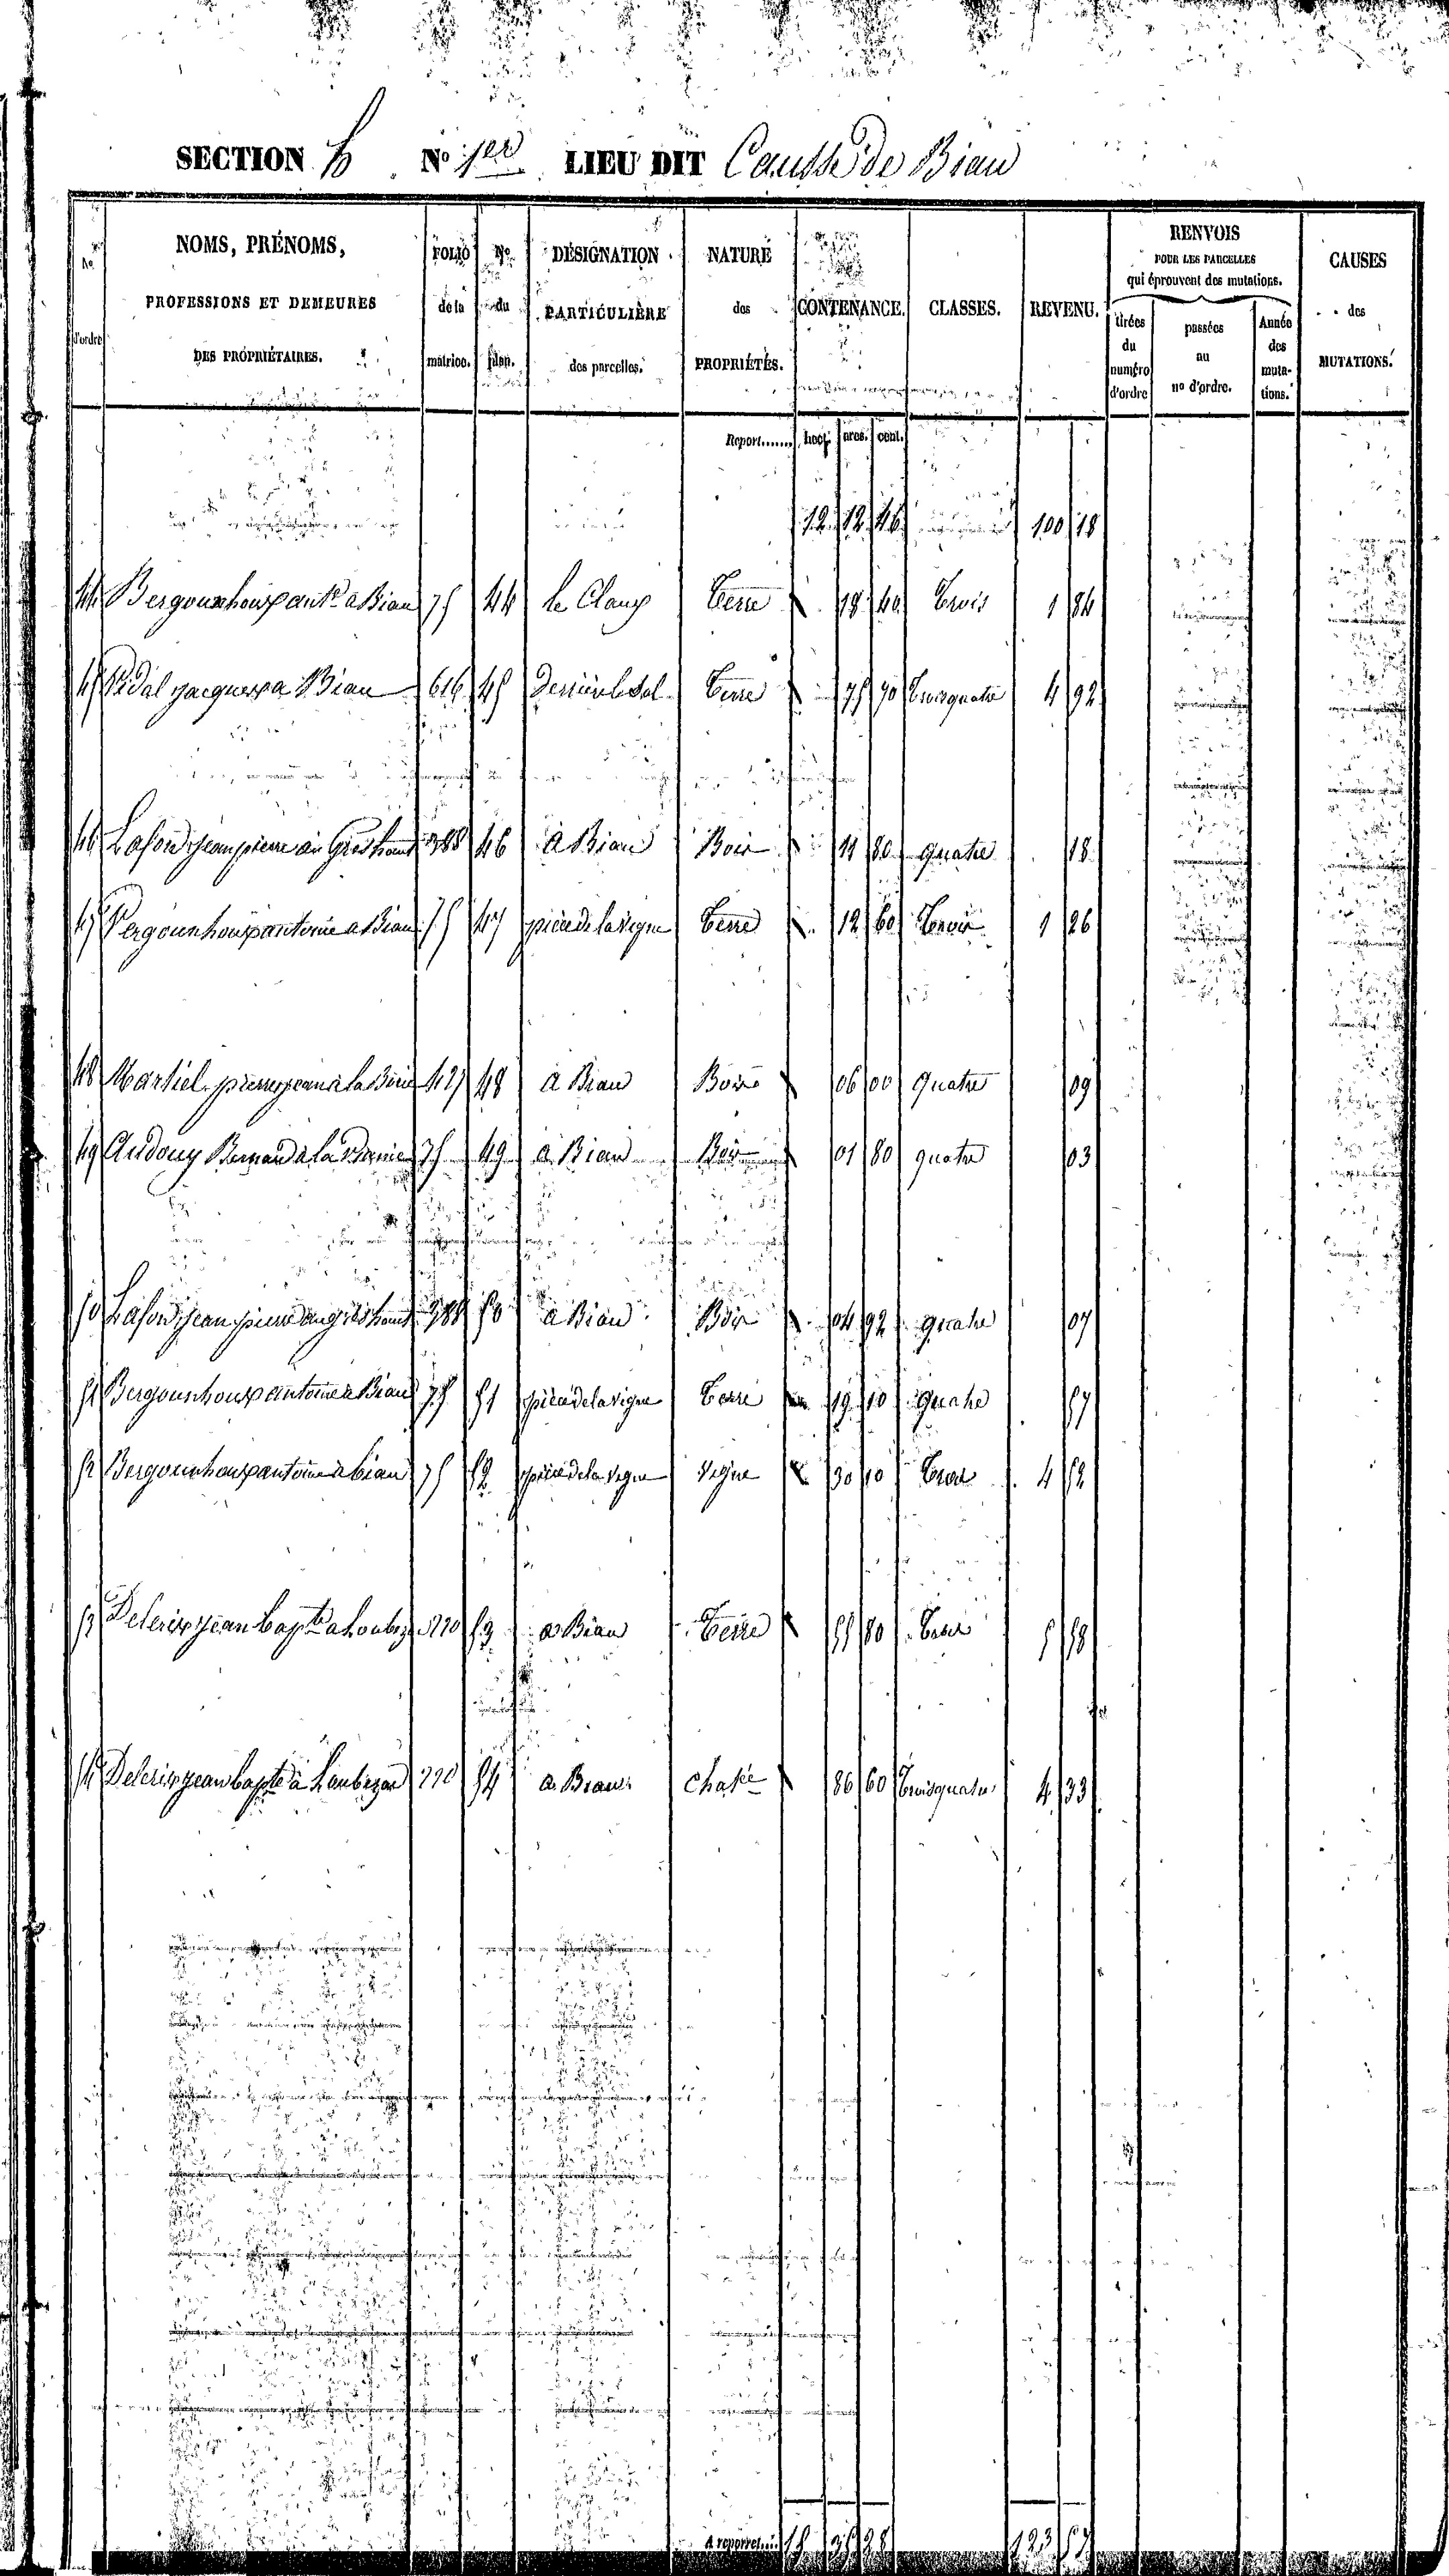 SECTION b N° 1er LIEU DIT Causse de Biau
N° d'ordre | NOMS, PRÉNOMS, PROFESSIONS ET DEMEURES DES PROPRIÉTAIRES. | FOLIO de la matrice. | N° du plan. | DÉSIGNATION PARTICULIÈRE des parcelles. | NATURE des PROPRIÉTÉS. | CONTENANCE. | CLASSES. | REVENU. | RENVOIS POUR LES PARCELLES qui éprouvent des mutations. tirées du numéro d'ordre | passées au n° d'ordre. | Année des mutations. | CAUSES des MUTATIONS.
Report....... hect. ares. cent.
12 12 46 100 18
44 Bergounhoux ant.ne a Biau 75 44 le Claux Terre 18 40 Trois 1 84
45 Vidal jacques a Biau 616 45 Derrière le Sol Terre 75 70 Trois quatre 4 92
46 Lafon jean pierre au Grès haut 388 46 à Biau Bois 11 80 quatre 18
47 Bergounhoux antoine a Biau 75 47 pièce de la vigne Terre 12 60 Trois 1 26
48 Martiel pierre jean à la Borie 427 48 à Biau Bois 06 00 quatre 09
49 Audouy Bernard à la 75 49 à Biau Bois 01 80 quatre 03
50 Lafon jean pierre au grès haut 388 50 a Biau Bois 04 92 quatre 07
51 Bergounhoux antoine a Biau 75 51 pièce de la vigne Terre 19 10 quatre 57
52 Bergounhoux antoine a biau 75 52 pièce de la vigne vigne 30 10 Trois 4 52
53 Deleris jean bapte a 220 53 a Biau Terre 55 80 Trois 5 58
54 Delerix jean bapte à 220 54 a Biau chat.ie 86 60 Trois quatre 4 33
A reporter.... 15 35 28 123 57